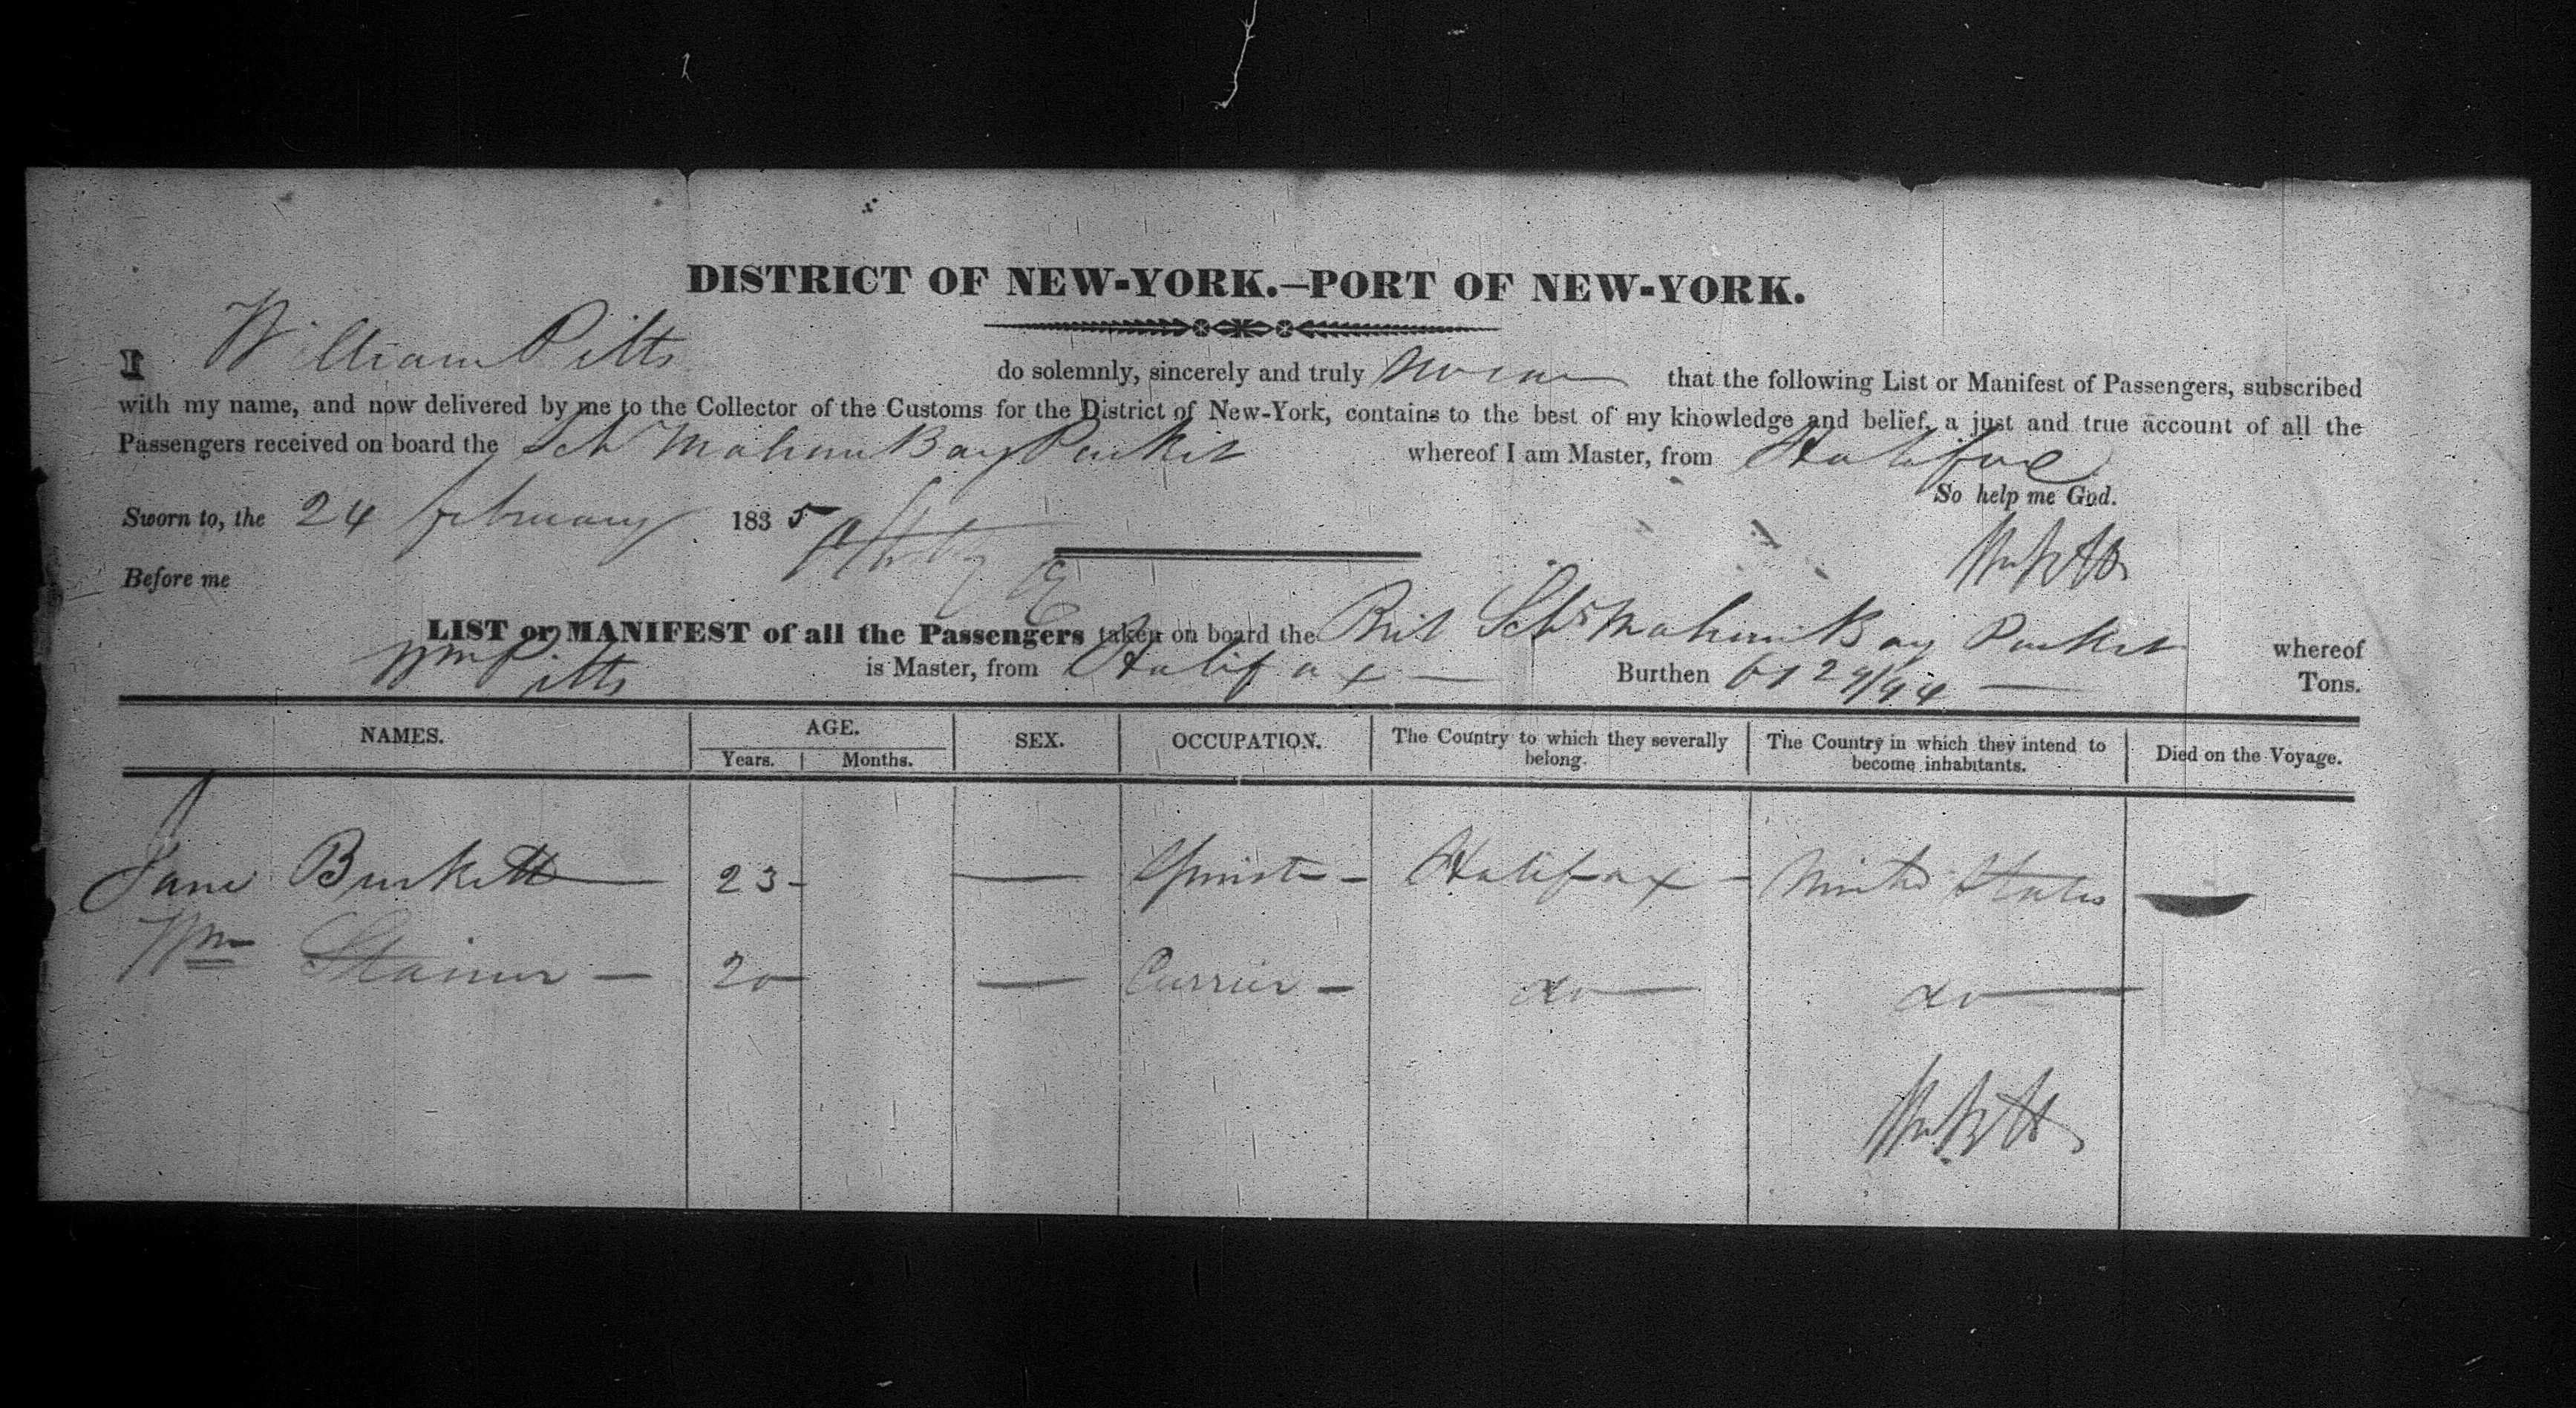 DISTRICT OF NEW-YORK.—PORT OF NEW-YORK.
I William Pitts do solemnly, sincerely and truly swear that the following List or Manifest of Passengers, subscribed
with my name, and now delivered by me to the Collector of the Customs for the District of New-York, contains to the best of my knowledge and belief, a just and true account of all the
Passengers received on board the Sch Mahone Bay Packet whereof I am Master, from Halifax
So help me God.
Sworn to, the 24 february 1835
Wm Pitts
Before me
LIST or MANIFEST of all the Passengers taken on board the Brit Schr Mahone Bay Packet whereof
Wm Pitts is Master, from Halifax — Burthen 61 29/94 — Tons.
NAMES. AGE. SEX. OCCUPATION. The Country to which they severally belong. The Country in which they intend to become inhabitants. Died on the Voyage.
Years. Months.
Jane Burkett 23 — Spinst — Halifax — United States —
Wm Stainer — 20 — Currier — do do
Wm Pitts